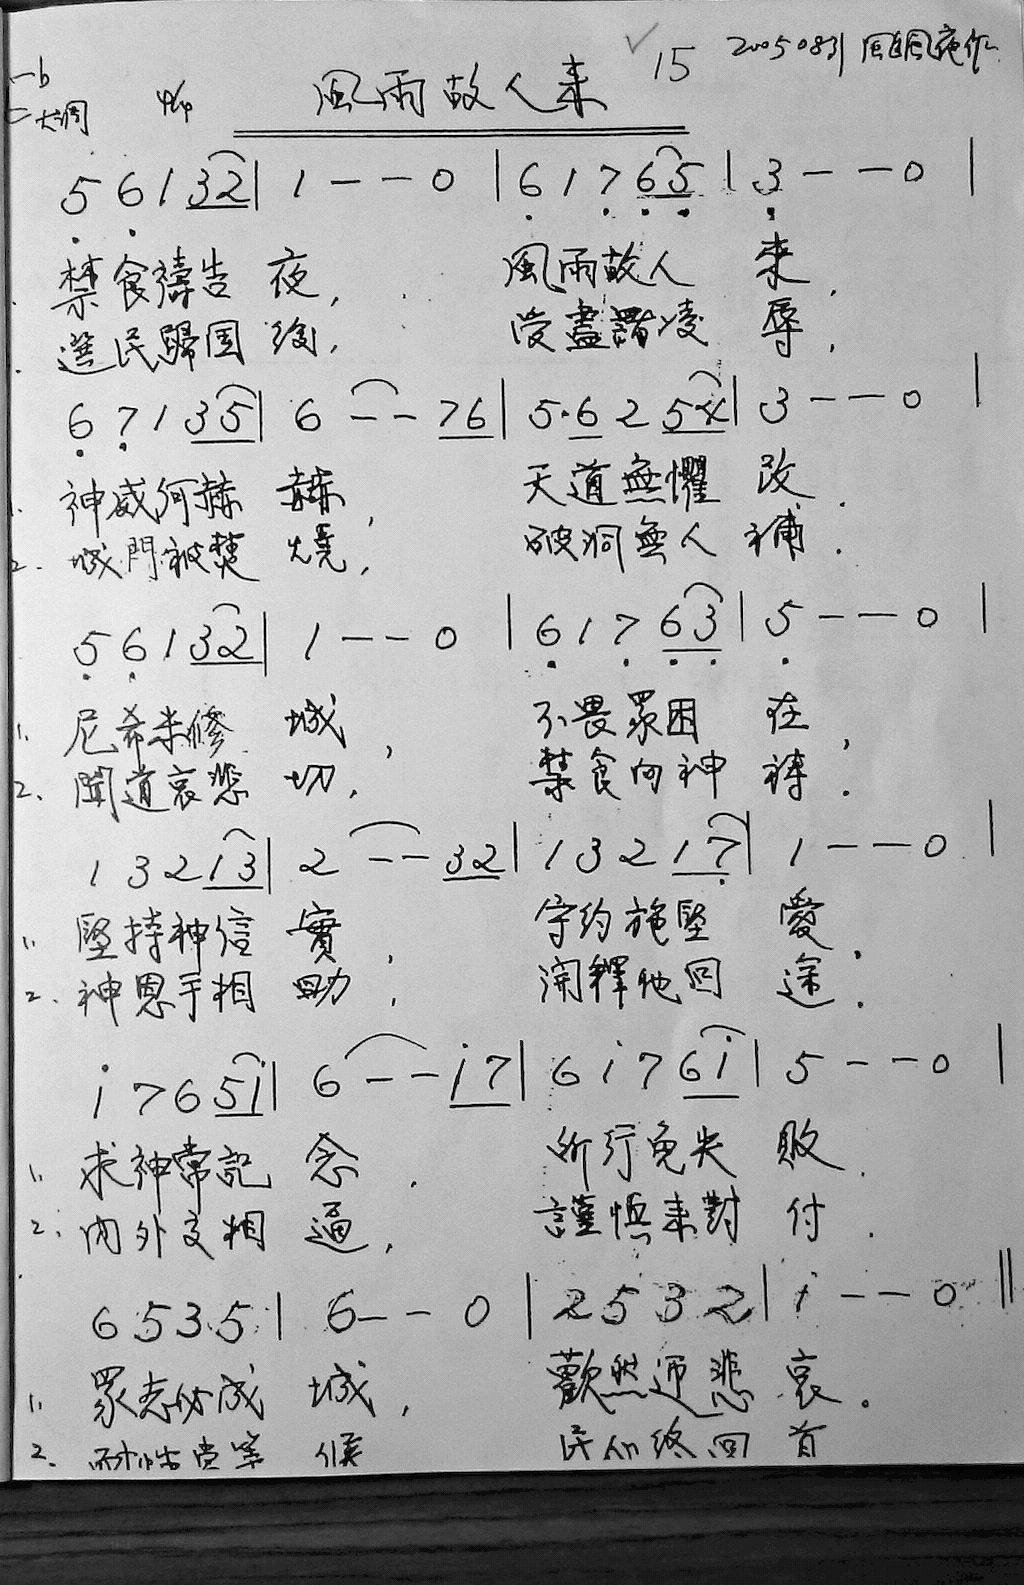 15 20050831 風颱夜作
一b
二大調
風雨故人来
5 6 1 3 2 | 1 - - 0 | 6 1 7 6 5 | 3 - - 0 |
禁食禱告 夜, 風雨故人 来,
選民歸国 後, 受盡諸凌 辱,
6 7 1 3 5 | 6 - - 7 6 | 5·6 2 5 4 | 3 - - 0 |
1. 神威何赫 赫, 天道無懼 改.
2. 城門被焚 燒, 破洞無人 補.
5 6 1 3 2 | 1 - - 0 | 6 1 7 6 3 | 5 - - 0 |
1. 尼希米修 城, 不畏眾困 在,
2. 聞道哀悲 切, 禁食向神 禱.
1 3 2 1 3 | 2 - - 3 2 | 1 3 2 1 7 | 1 - - 0 |
1. 堅持神信 實, 守約施堅 愛.
2. 神恩手相 助, 開釋他回 途.
i 7 6 5 i | 6 - - i 7 | 6 i 7 6 i | 5 - - 0 |
1. 求神常記 念. 所行免失 敗.
2. 内外交相 逼, 謹慎来對 付.
6 5 3 5 | 6 - - 0 | 2 5 3 2 | i - - 0 ||
1. 眾志必成 城, 歡然迎悲 哀.
2. 候 民 終回 首